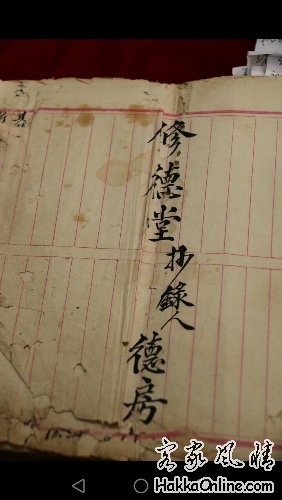 修德堂抄錄人
德房
客家風情
HakkaOnline.com